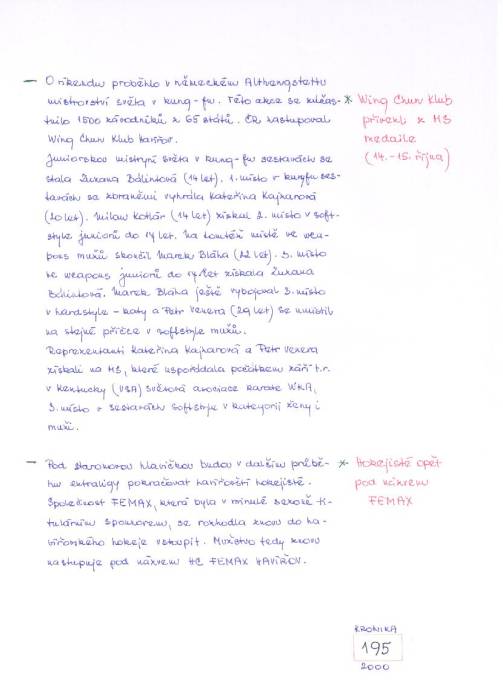 — O víkendu proběhlo v německém Althengstettu
mistrovství světa v kung-fu. Této akce se zúčast-
nilo 1500 závodníků z 65 států. ČR zastupoval
Wing Chun Klub Havířov.
Juniorskou mistryní světa v kung-fu sestavách se
stala Zuzana Bálintová (14 let). 1. místo v kungfu ses-
tavách se zbraněmi vyhrála Kateřina Kajzarová
(20 let). Milan Kotlár (14 let) získal 2. místo v soft-
style juniorů do 17 let. Na tomtéž místě ve wea-
pons mužů skončil Marek Bláha (22 let). 3. místo
ve weapons juniorů do 17 let získala Zuzana
Bálintová. Marek Bláha ještě vybojoval 3. místo
v hardstyle - katy a Petr Venera (29 let) se umístil
na stejné příčce v softstyle mužů.
Reprezentanti Kateřina Kajzarová a Petr Venera
získali na MS, které uspořádala počátkem září t.r.
v Kentucky (USA) světová asociace karate WKA,
3. místo v sestavách softstyle v kategorii ženy i
muži.
* Wing Chun Klub
přivezli z MS
medaile
(14.-15. října)
— Pod staronovou hlavičkou budou v dalším průbě-
hu extraligy pokračovat havířovští hokejisté.
Společnost FEMAX, která byla v minulé sezoně ti-
tulárním sponzorem, se rozhodla znovu do ha-
vířovského hokeje vstoupit. Mužstvo tedy znovu
nastupuje pod názvem HC FEMAX HAVÍŘOV.
* Hokejisté opět
pod názvem
FEMAX
KRONIKA
195
2000